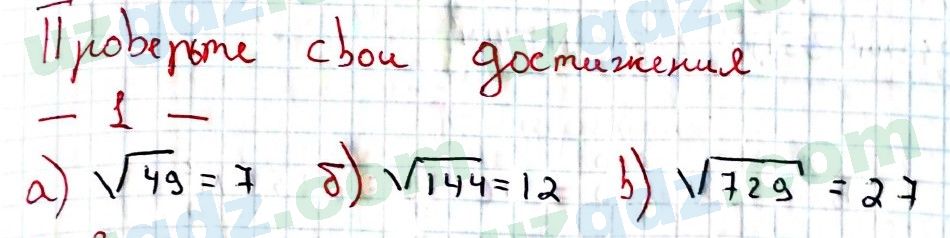 Проверьте свои достижения
— 1 —
а) √49 = 7 б) √144 = 12 в) √729 = 27